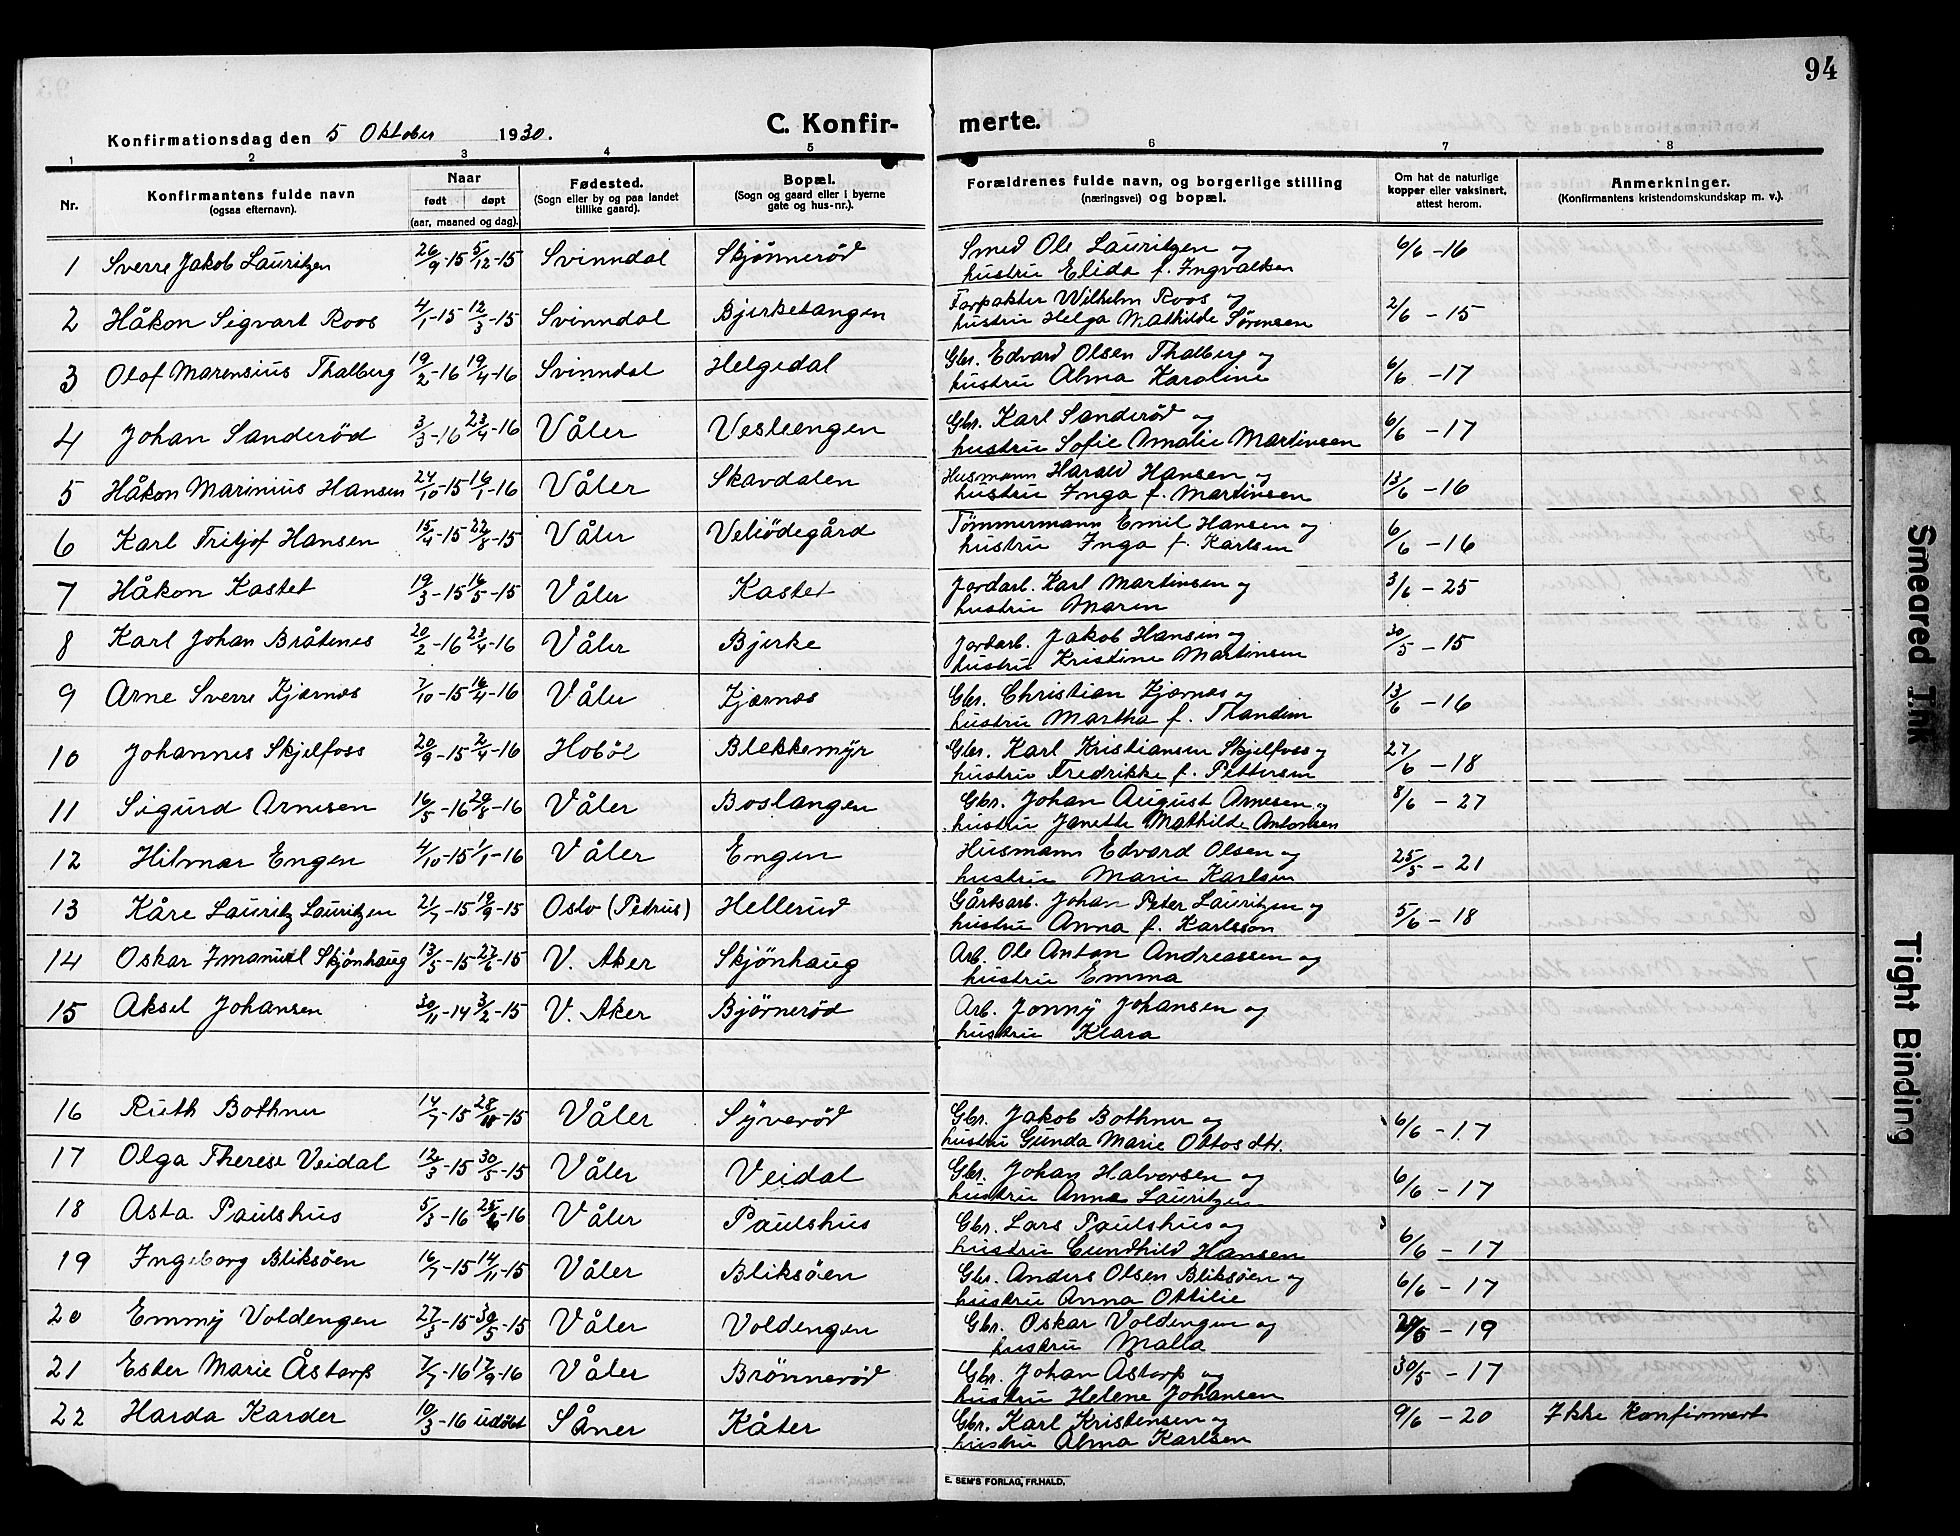 94
C. Konfirmerte.
Konfirmationsdag den 5 Oktober 1930.
1 2 3 4 5 6 7 8
Nr. Konfirmantens fulde navn (ogsaa efternavn). Naar født døpt (aar, maaned og dag). Fødested. (Sogn eller by og paa landet tillike gaard). Bopæl. (Sogn og gaard eller i byerne gate og hus-nr.). Forældrenes fulde navn, og borgerlige stilling (næringsvei) og bopæl. Om hat de naturlige kopper eller vaksinert, attest herom. Anmerkninger. (Konfirmantens kristendomskundskap m. v.).
1 Sverre Jakob Lauritzen 26/9-15 5/12-15 Svinndal Skjønnerød Smed Ole Lauritzen og 6/6-16
hustru Elida f. Ingvaldsen
2 Håkon Sigvart Roos 4/1-15 12/3-15 Svinndal Bjerketangen Forpakter Wilhelm Roos og 2/6-15
hustru Helga Mathilde Sørensen
3 Olof Marensius Thalberg 19/2-16 19/4-16 Svinndal Helgedal Gbr. Edvard Olsen Thalberg og 6/6-17
hustru Alma Karoline
4 Johan Sanderød 3/3-16 23/4-16 Våler Vesleengen Gbr. Karl Sanderød og 6/6-17
hustru Sofie Amalie Martinsen
5 Håkon Marinius Hansen 24/10-15 16/1-16 Våler Skavdalen Husmann Harald Hansen og 13/6-16
hustru Inga f. Martinsen
6 Karl Fritjof Hansen 15/4-15 22/8-15 Våler Veliödegård Tømmermann Emil Hansen og 6/6-16
hustru Inga f. Karlsen
7 Håkon Kastet 19/3-15 16/5-15 Våler Kastet Jordarb. Karl Martinsen og 3/6-25
hustru Maren
8 Karl Johan Bråtenes 20/2-16 23/4-16 Våler Bjerke Jordarb. Jakob Hansen og 30/5-15
hustru Kristine Martinsen
9 Arne Sverre Kjærnæs 7/10-15 16/4-16 Våler Kjærnæs Gbr. Christian Kjærnæs og 13/6-16
hustru Martha f. Thandem
10 Johannes Skjelfoss 20/9-15 2/4-16 Hobøl Blekkemyr Gbr. Karl Kristiansen Skjelfoss og 27/6-18
hustru Fredrikke f. Pettersen
11 Sigurd Arnesen 16/5-16 20/8-16 Våler Boslangen Gbr. Johan August Arnesen og 8/6-27
hustru Janette Mathilde Antonsen
12 Hilmar Engen 4/10-15 1/1-16 Våler Engen Husmann Edvard Olsen og 25/5-21
hustru Marie Karlsen
13 Kåre Lauritz Lauritzen 21/7-15 19/9-15 Oslo (Petrus) Hellerud Gårdsarb. Johan Peter Lauritzen og 5/6-18
hustru Anna f. Karlsson
14 Oskar Imanuel Skjönhaug 13/5-15 27/6-15 V. Aker Skjönhaug Arb. Ole Anton Andreassen og
hustru Emma
15 Aksel Johansen 30/11-14 3/2-15 V. Aker Bjørnerød Arb. Jonny Johansen og
hustru Klara
16 Ruth Bothner 14/7-15 28/11-15 Våler Syverød Gbr. Jakob Bothner og 6/6-17
hustru Gunda Marie Ottosdtr.
17 Olga Therese Veidal 12/3-15 30/5-15 Våler Veidal Gbr. Johan Halvorsen og 6/6-17
hustru Anna Lauritzen
18 Asta Paulshus 5/3-16 25/6-16 Våler Paulshus Gbr. Lars Paulshus og 6/6-17
hustru Gundhild Hansen
19 Ingeborg Bliksöen 16/7-15 14/11-15 Våler Bliksöen Gbr. Anders Olsen Bliksöen og 6/6-17
hustru Anna Ottilie
20 Emmy Voldengen 27/3-15 30/5-15 Våler Voldengen Gbr. Oskar Voldengen og 29/5-19
hustru Malla
21 Ester Marie Åstorp 7/7-16 17/9-16 Våler Brönnerød Gbr. Johan Åstorp og 30/5-17
hustru Helene Johansen
22 Harda Karder 10/3-16 udöbt Såner Kåter Gbr. Karl Kristensen og 9/6-20 Ikke konfirmert
hustru Alma Karlsen
E. SEM'S FORLAG, FR.HALD.
Smeared Ink
Tight Binding